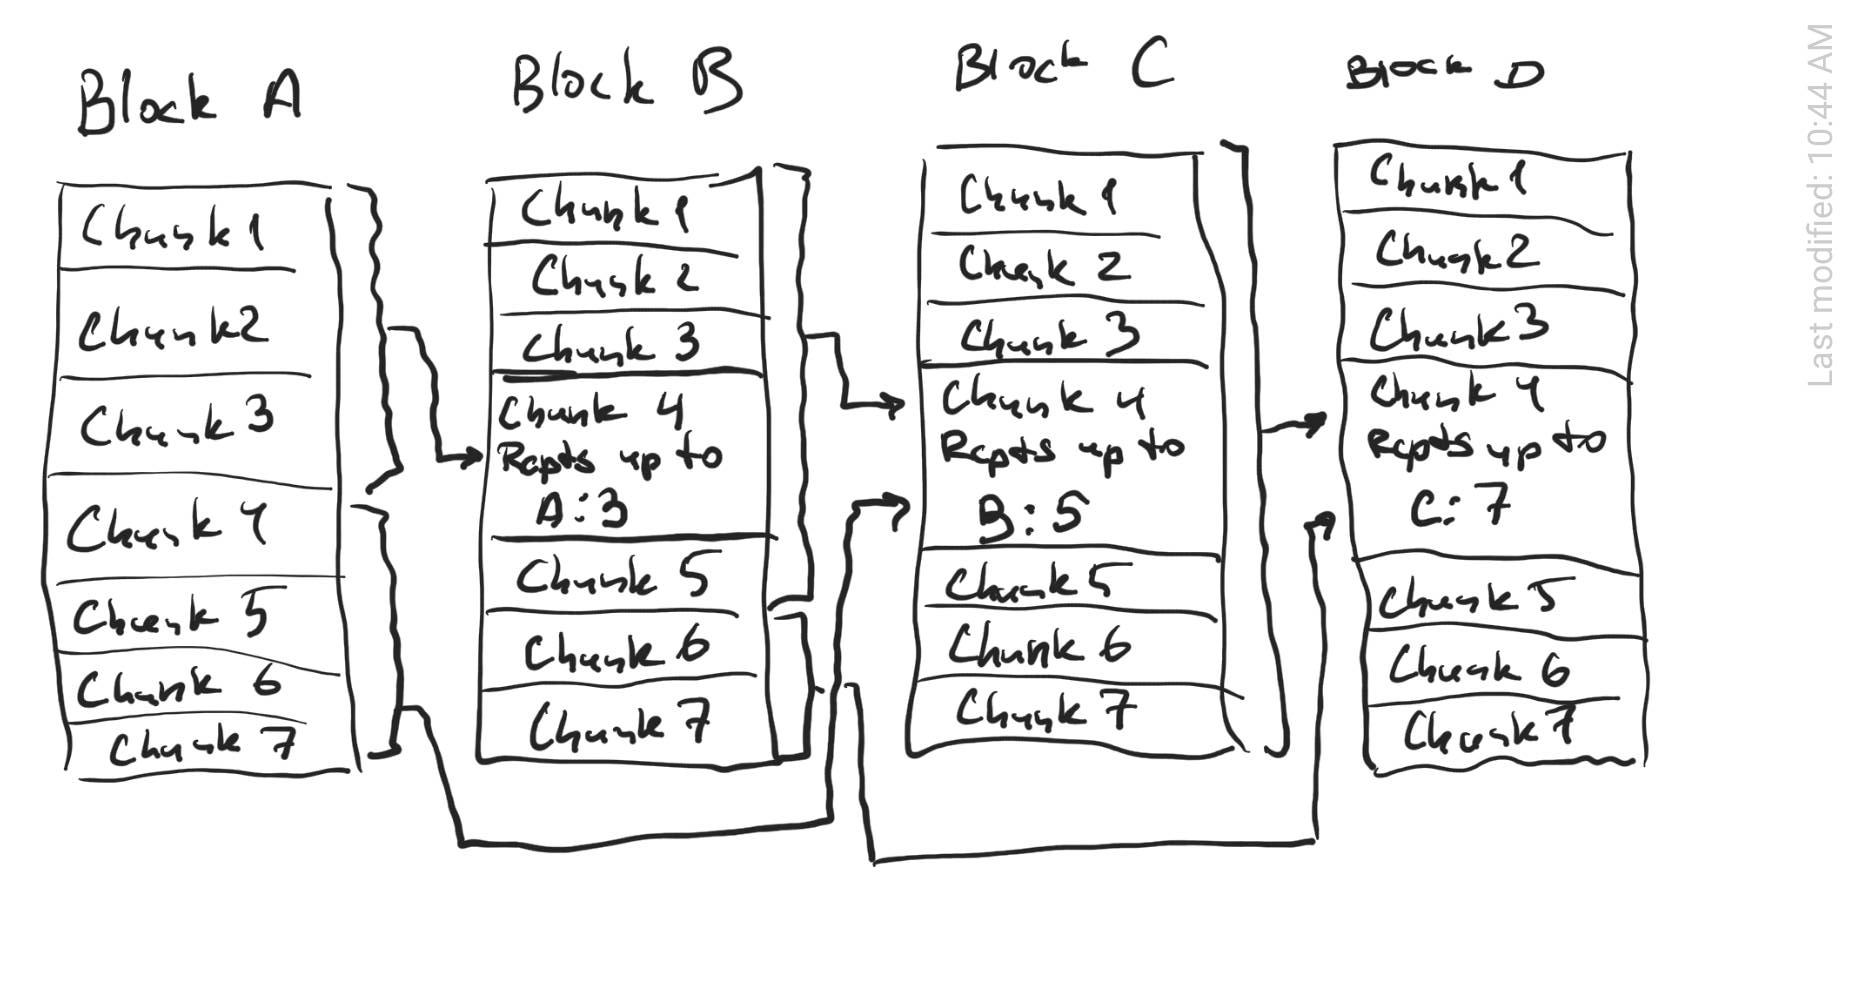 Block A
Chunk 1
Chunk 2
Chunk 3
Chunk 4
Chunk 5
Chunk 6
Chunk 7
Block B
Chunk 1
Chunk 2
Chunk 3
Chunk 4
Rcpts up to
A:3
Chunk 5
Chunk 6
Chunk 7
Block C
Chunk 1
Chunk 2
Chunk 3
Chunk 4
Rcpts up to
B:5
Chunk 5
Chunk 6
Chunk 7
Block D
Chunk 1
Chunk 2
Chunk 3
Chunk 4
Rcpts up to
C:7
Chunk 5
Chunk 6
Chunk 7
Last modified: 10:44 AM